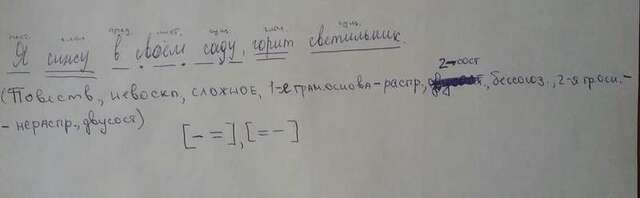 мест. глаг. пред. мест. сущ. глаг. сущ.
Я синсу в моём саду, горит светильник.
2-сост
(Повеств, невоскл, сложное, 1-я грам.основа-распр., бессоюз., 2-я гр.осн.-
- нераспр., двусост)
[- =], [= -]